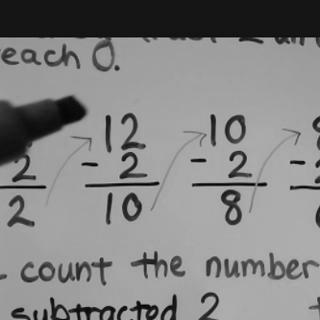 each 0.
12 10
2 - 2 - 2 -
2 10 8
count the number
subtracted 2